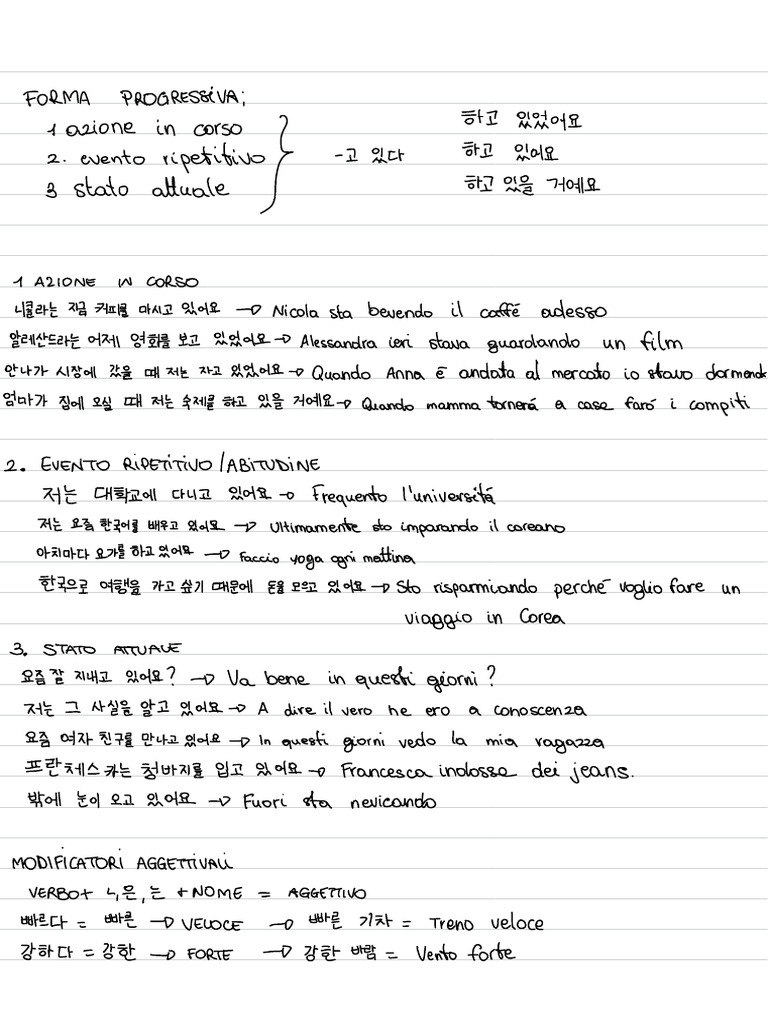 FORMA PROGRESSIVA;
1 azione in corso
2. evento ripetitivo
3 stato attuale
-고 있다
하고 있었어요
하고 있어요
하고 있을 거예요
1 AZIONE IN CORSO
니콜라는 지금 커피를 마시고 있어요 → Nicola sta bevendo il caffé adesso
알레산드라는 어제 영화를 보고 있었어요 → Alessandra ieri stava guardando un film
안나가 시장에 갔을 때 저는 자고 있었어요 → Quando Anna è andata al mercato io stavo dormendo
엄마가 집에 오실 때 저는 숙제를 하고 있을 거예요 → Quando mamma tornerá a casa faró i compiti
2. EVENTO RIPETITIVO/ABITUDINE
저는 대학교에 다니고 있어요 → Frequento l'universitá
저는 요즘 한국어를 배우고 있어요 → Ultimamente sto imparando il coreano
아치마다 요가를 하고 있어요 → Faccio yoga ogni mattina
한국으로 여행을 가고 싶기 때문에 돈을 모으고 있어요 → Sto risparmiando perché voglio fare un
viaggio in Corea
3. STATO ATTUALE
요즘 잘 지내고 있어요? → Va bene in questi giorni?
저는 그 사실을 알고 있어요 → A dire il vero ne ero a conoscenza
요즘 여자 친구를 만나고 있어요 → In questi giorni vedo la mia ragazza
프란체스카는 청바지를 입고 있어요 → Francesca indossa dei jeans.
밖에 눈이 오고 있어요 → Fuori sta nevicando
MODIFICATORI AGGETTIVALI
VERBO + ㄴ, 은, 는 + NOME = AGGETTIVO
빠르다 = 빠른 → VELOCE → 빠른 기차 = Treno veloce
강하다 = 강한 → FORTE → 강한 바람 = Vento forte